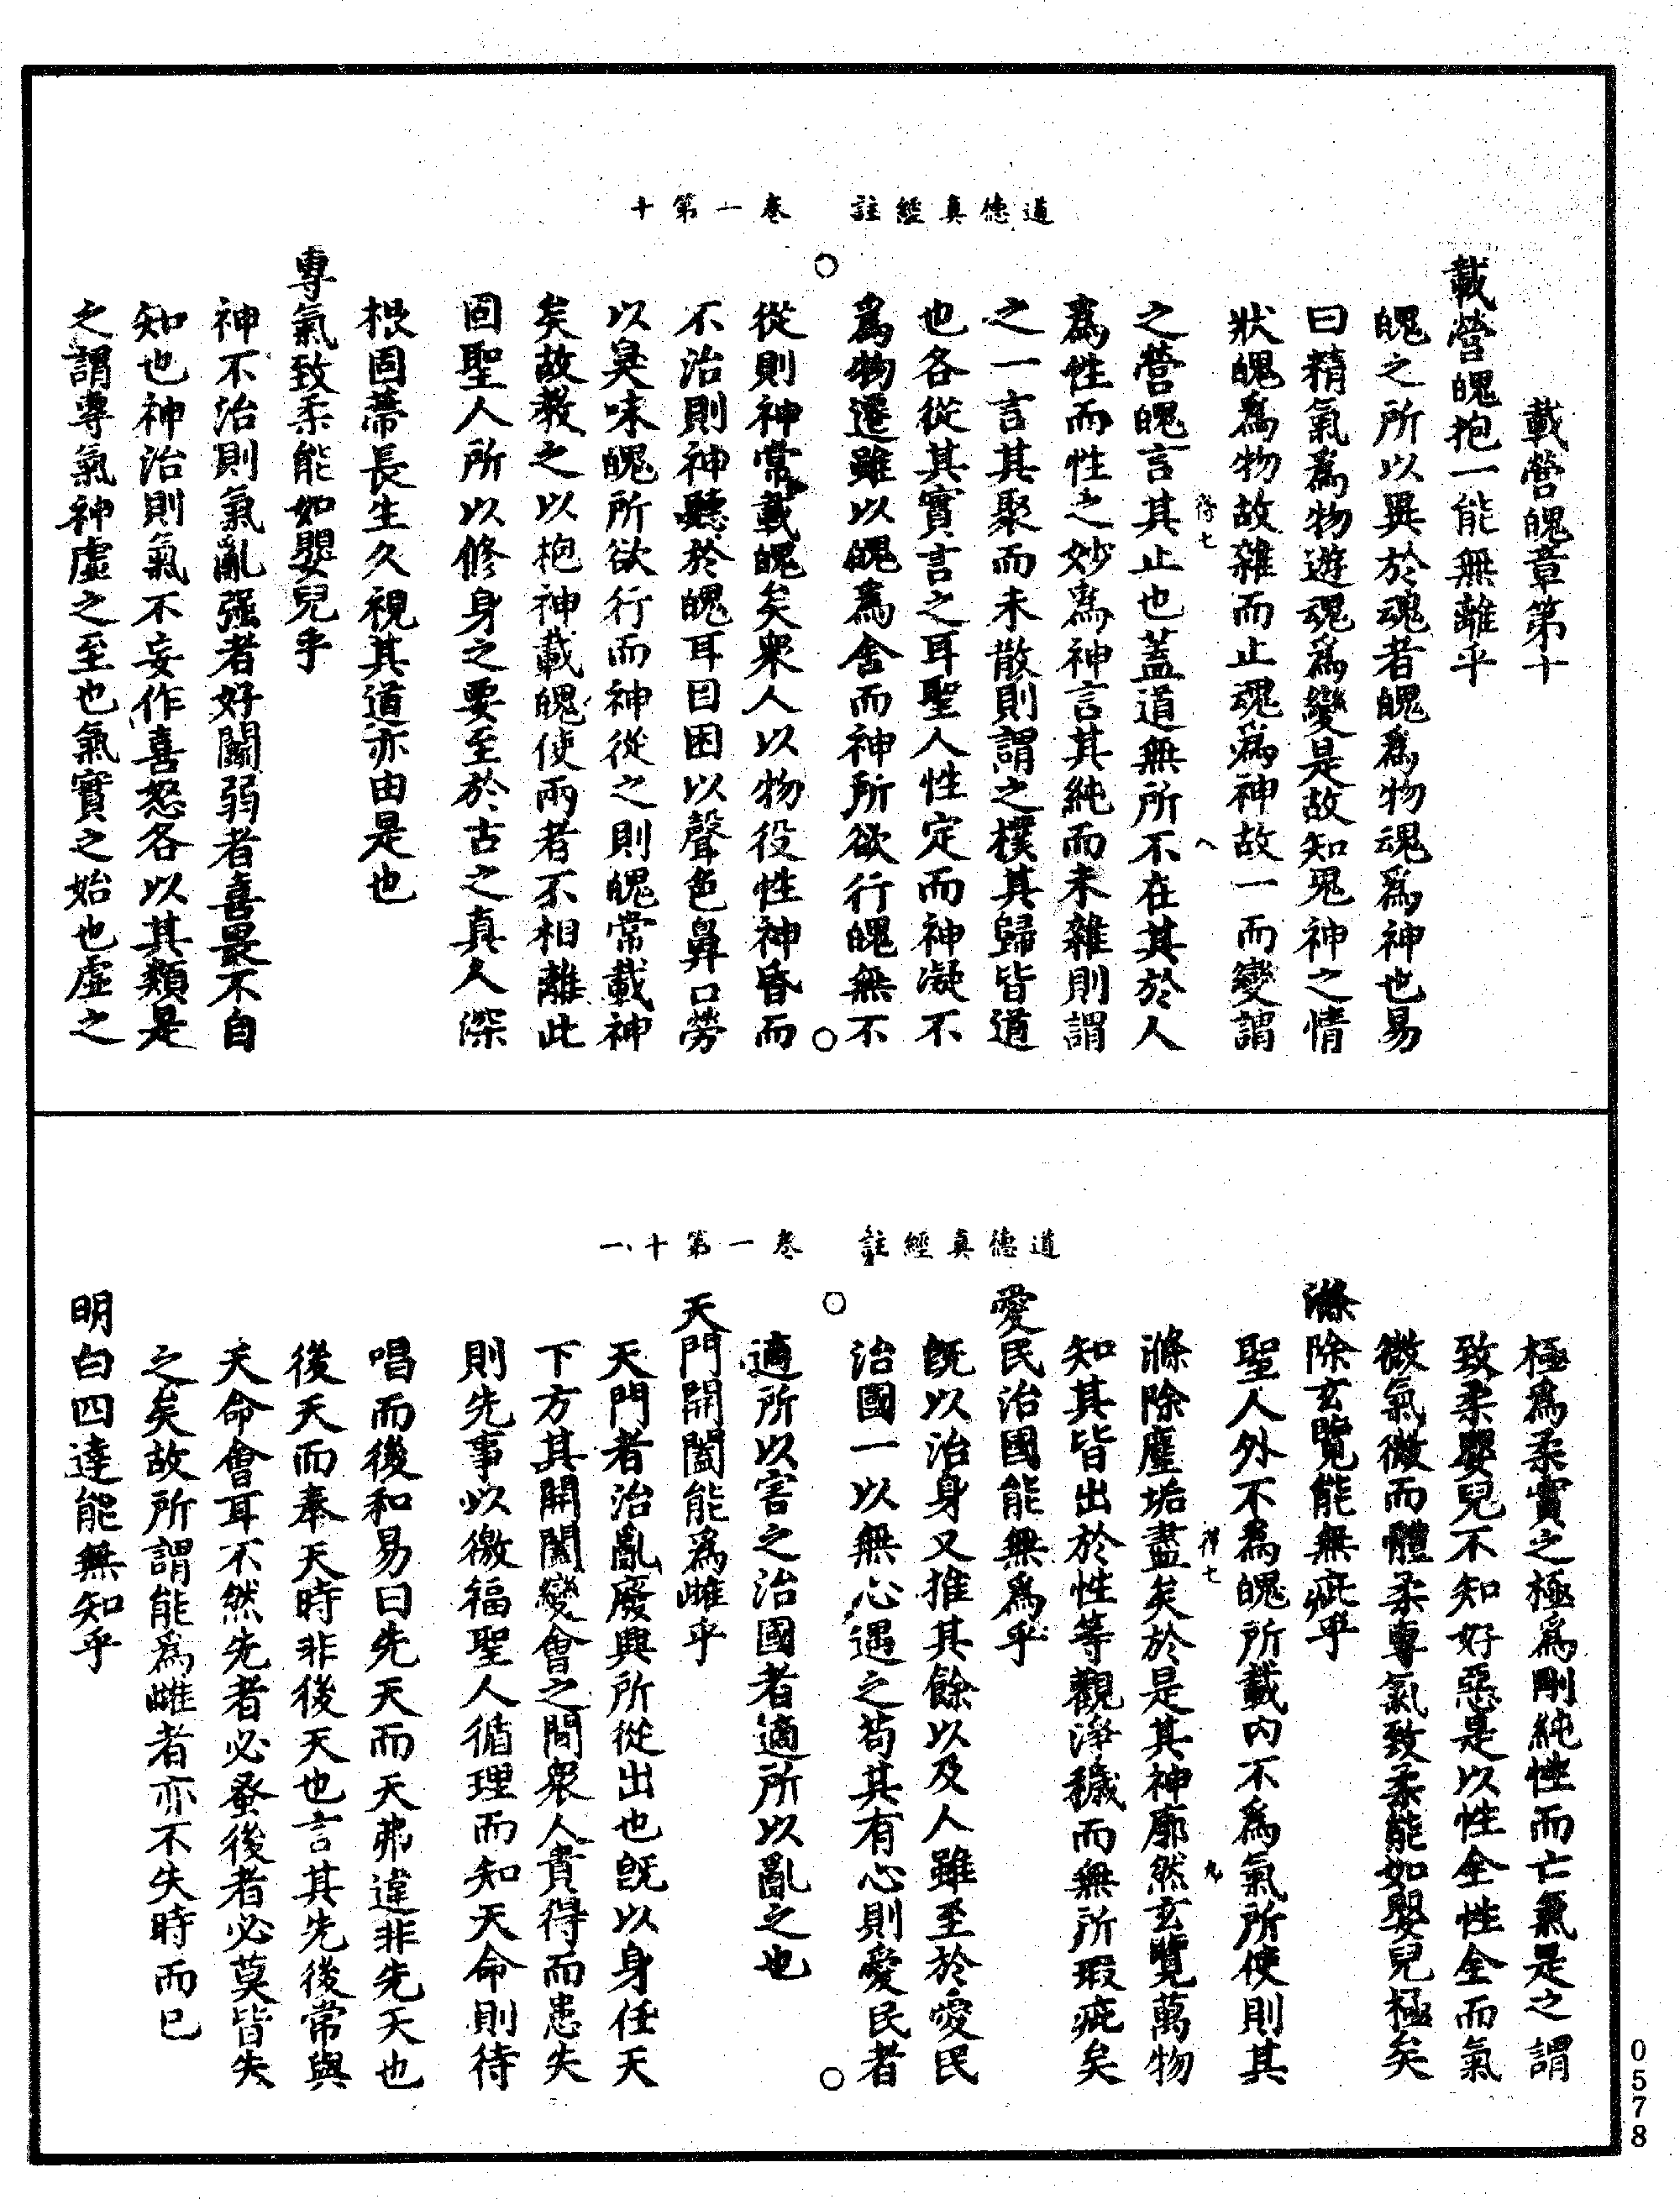 道德真經註　卷一第十
載營魄章第十
載營魄抱一能無離乎
魄之所以異於魂者魄為物魂為神也易
曰精氣為物遊魂為變是故知鬼神之情
狀魄為物故雜而止魂為神故一而變謂
之營魄言其止也蓋道無所不在其於人
為性而性之妙為神言其純而未雜則謂
之一言其聚而未散則謂之樸其歸皆道
也各從其實言之耳聖人性定而神凝不
為物遷雖以魄為舍而神所欲行魄無不
從則神常載魄矣衆人以物役性神昏而
不治則神聽於魄耳目困以聲色鼻口勞
以臭味魄所欲行而神從之則魄常載神
矣故教之以抱神載魄使兩者不相離此
固聖人所以修身之要至於古之真人深
根固蔕長生久視其道亦由是也
專氣致柔能如嬰兒乎
神不治則氣亂强者好鬭弱者喜畏不自
知也神治則氣不妄作喜怒各以其類是
之謂專氣神虛之至也氣實之始也虛之
道德真經註　卷一第十一
極為柔實之極為剛純性而亡氣是之謂
致柔嬰兒不知好惡是以性全性全而氣
微氣微而體柔專氣致柔能如嬰兒極矣
滌除玄覽能無疵乎
聖人外不為魄所載内不為氣所使則其
滌除塵垢盡矣於是其神廓然玄覽萬物
知其皆出於性等觀淨穢而無所瑕疵矣
愛民治國能無為乎
既以治身又推其餘以及人雖至於愛民
治國一以無心遇之苟其有心則愛民者
適所以害之治國者適所以亂之也
天門開闔能為雌乎
天門者治亂廢興所從出也既以身任天
下方其開闔變會之間衆人貴得而患失
則先事以徼福聖人循理而知天命則待
唱而後和易曰先天而天弗違非先天也
後天而奉天時非後天也言其先後常與
天命會耳不然先者必蚤後者必莫皆失
之矣故所謂能為雌者亦不失時而已
明白四達能無知乎
0578